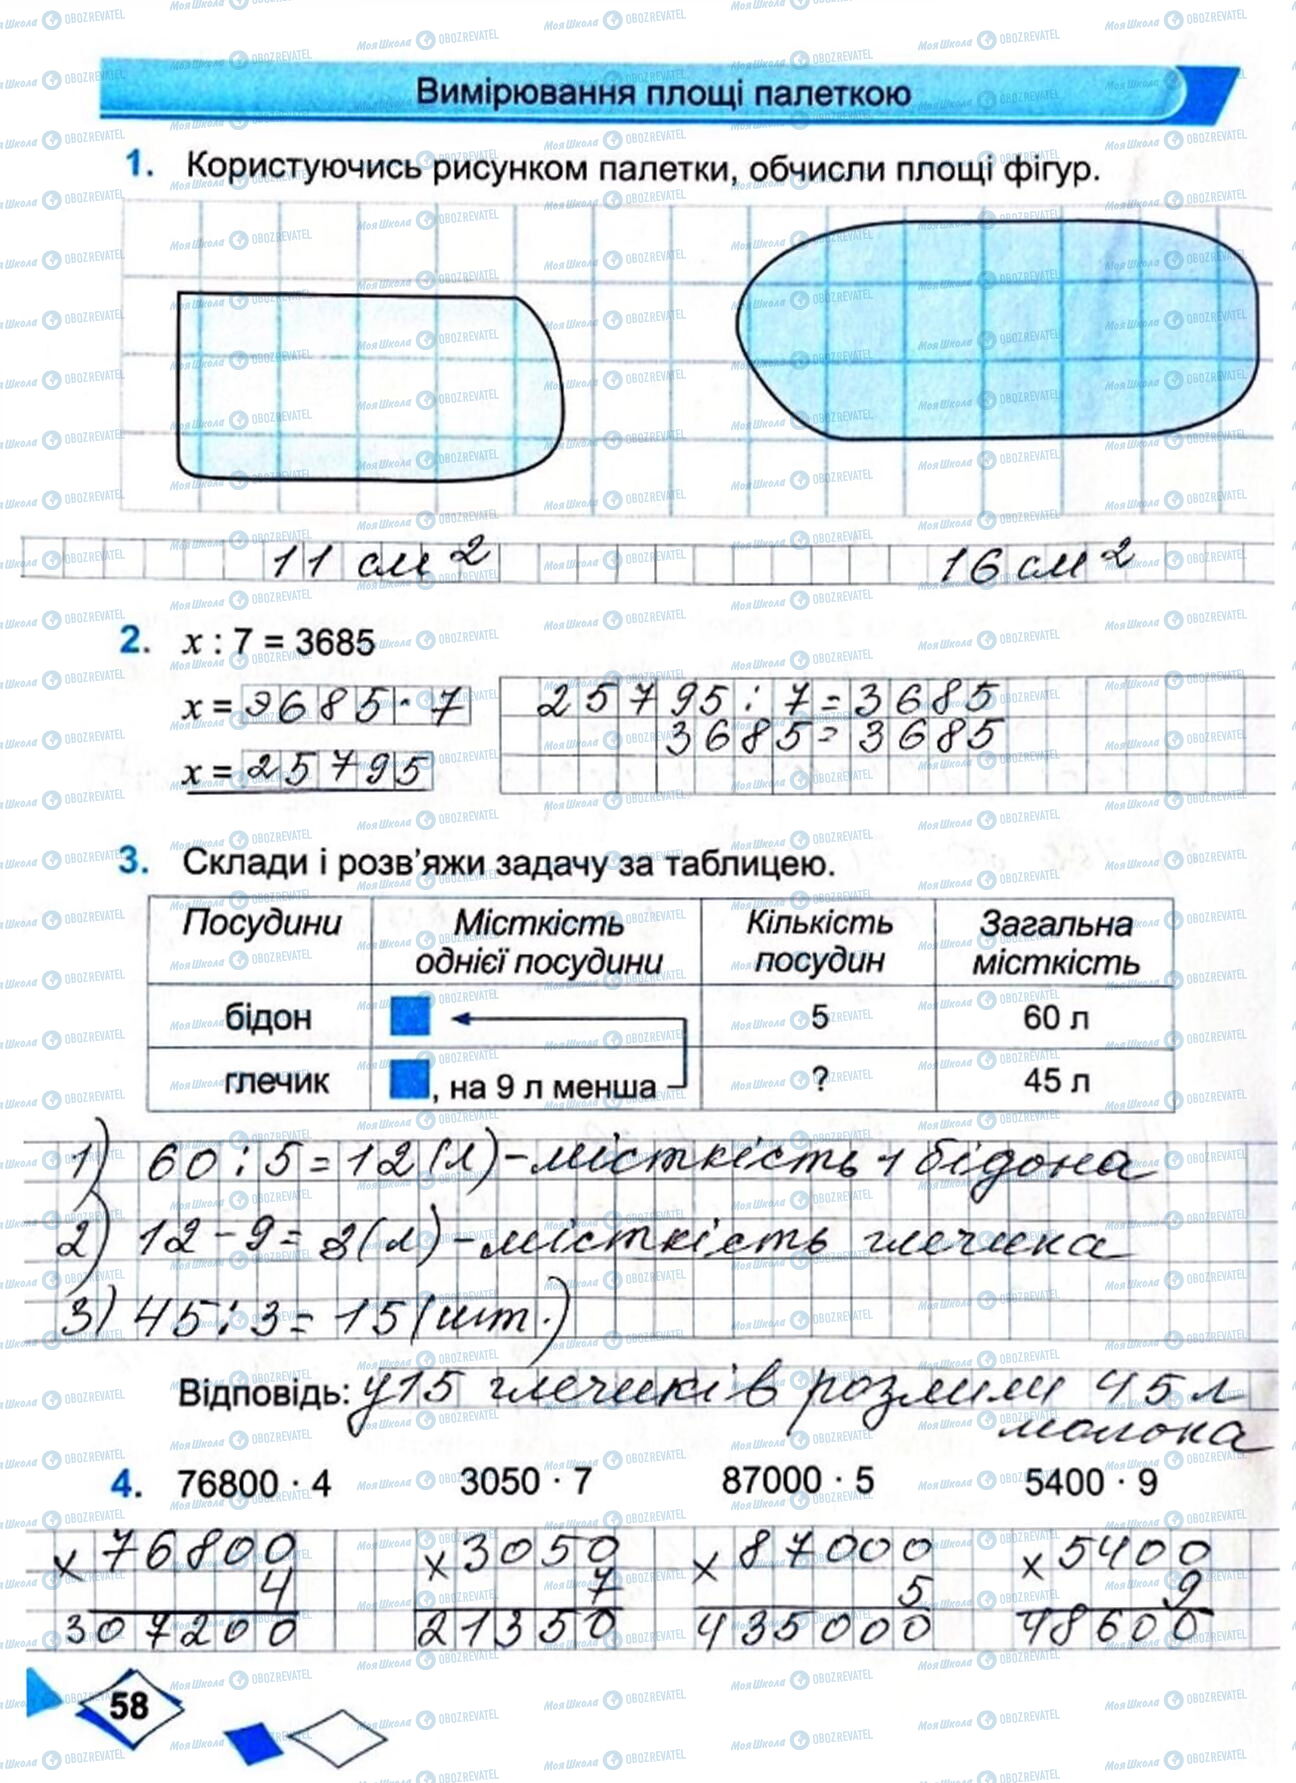 Вимірювання площі палеткою
1. Користуючись рисунком палетки, обчисли площі фігур.
11 см 2
16 см 2
2. x : 7 = 3685
x = 3685 · 7
25795 : 7 = 3685
3685 = 3685
x = 25795
3. Склади і розв’яжи задачу за таблицею.
Посудини Місткість однієї посудини Кількість посудин Загальна місткість
бідон 5 60 л
глечик , на 9 л менша ? 45 л
1) 60 : 5 = 12 (л) – місткість 1 бідона
2) 12 – 9 = 3 (л) – місткість глечика
3) 45 : 3 = 15 (шт.)
Відповідь: у 15 глечиків розлили 45 л
молока
4. 76800 · 4 3050 · 7 87000 · 5 5400 · 9
x 76800 x 3050 x 87000 x 5400
4 7 5 9
307200 21350 435000 48600
58
МояШкола OBOZREVATEL